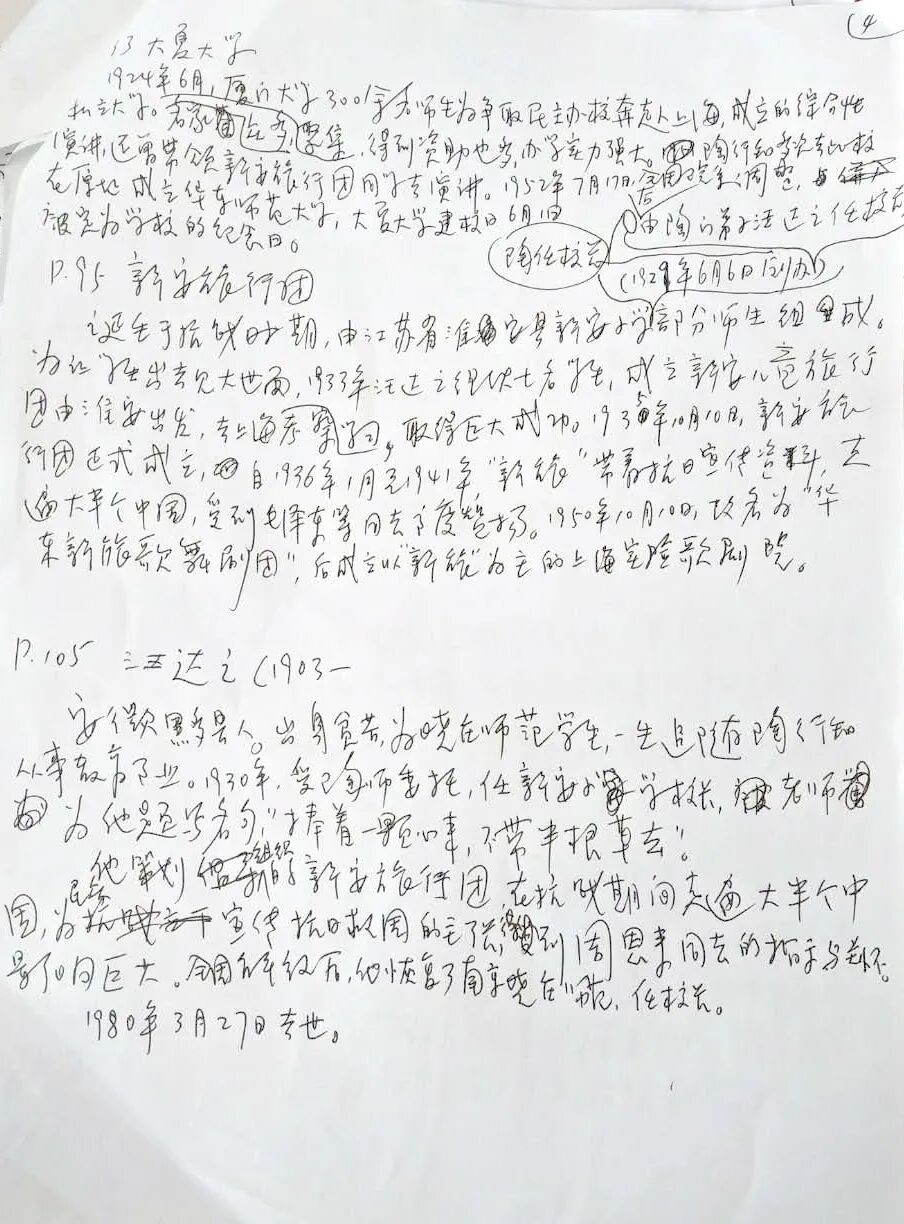 (4
13 大夏大学
1924年6月,厦门大学300余名师生为争取民主办校奔走上海,成立的综合性
私立大学。名家众多,聚集,得到资助也多,办学实力强大。陶行知多次去此校
演讲,还曾带领新安旅行团同学去演讲。1952年7月17日,全国院系调整,
在原址成立华东师范大学,大夏大学建校日6月1日
被定为学校的纪念日。
后由陶门弟子汪达之任校长
陶任校长
(1929年6月6日创办)
P.95 新安旅行团
诞生于抗战时期,由江苏省淮安县新安小学部分师生组成。
为让学生出去见大世面,1933年汪达之组织七名学生,成立新安儿童旅行
团由淮安出发,去上海考察学习,取得巨大成功。1935年10月10日,新安旅
行团正式成立,自1936年1月至1941年“新旅”带着抗日宣传资料,走
遍大半个中国,受到毛泽东等同志高度赞扬。1950年10月10日,改名为“华
东新旅歌舞剧团”,后成立以“新旅”为主的上海实验歌剧院。
P.105 汪达之(1903—
安徽黟县人。出身贫苦,为晓庄师范学生,一生追随陶行知
从事教育事业。1930年,受陶师委托,任新安小学校长,老师
为他题写名句,“捧着一颗心来,不带半根草去”。
他策划组织的新安旅行团,在抗战期间走遍大半个中
国,为宣传抗日救国的主张,得到周恩来同志的指示与关怀。
影响巨大。全国解放后,他恢复了南京晓庄师范,任校长。
1980年3月27日去世。